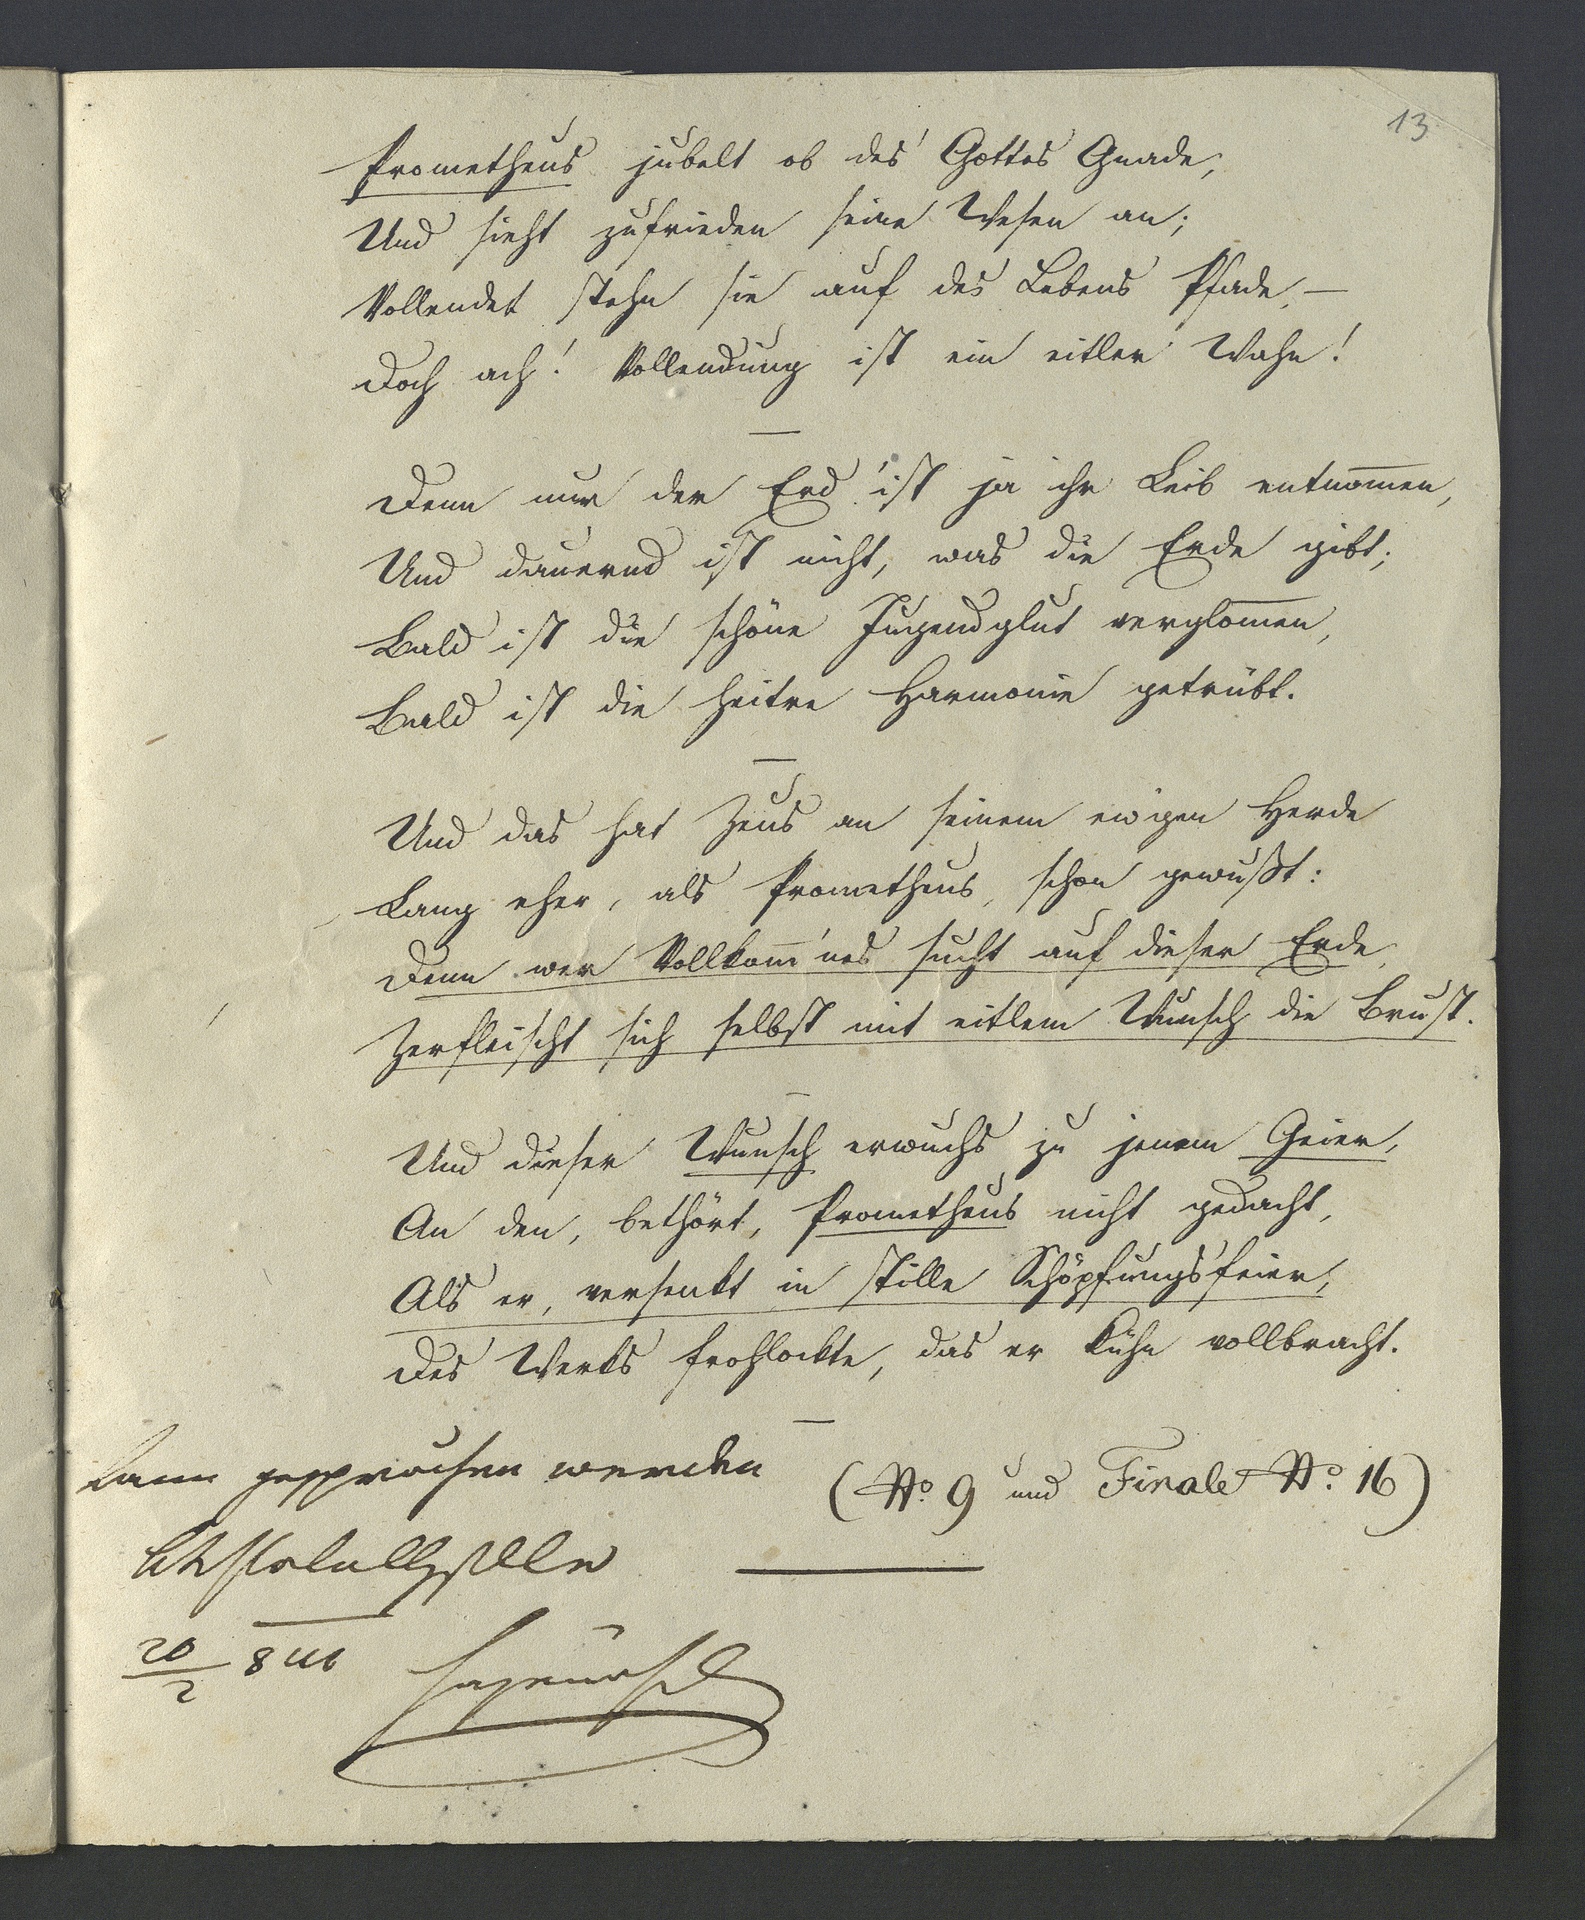 13
Prometheus jubelt ob des Gottes Gnade,
Und sieht zufrieden seine Wesen an;
Vollendet stehn sie auf des Lebens Pfade, —
Doch ach! Vollendung ist ein eitler Wahn!
—
Denn nur der Erd' ist ja ihr Leib entnom̅en,
Und dauernd ist nicht, was die Erde gibt;
Bald ist die schöne Jugendglut verglom̅en,
Bald ist die heitre Harmonie getrübt.
—
Und das hat Zeus an seinem ew'gen Herde
Lang eher, als Prometheus, schon gewußt:
Denn wer Vollkom̅'nes sucht auf dieser Erde,
Zerfleischt sich selbst mit eitlem Wunsch die Brust.
—
Und dieser Wunsch erwuchs zu jenem Geier,
An den, bethört, Prometheus nicht gedacht,
Als er, versenkt in stille Schöpfungsfeier,
Des Werks frohlockte, das er kühn vollbracht.
—
Kann gesprochen werden
(No. 9 und Finale No. 16)
20/2 841